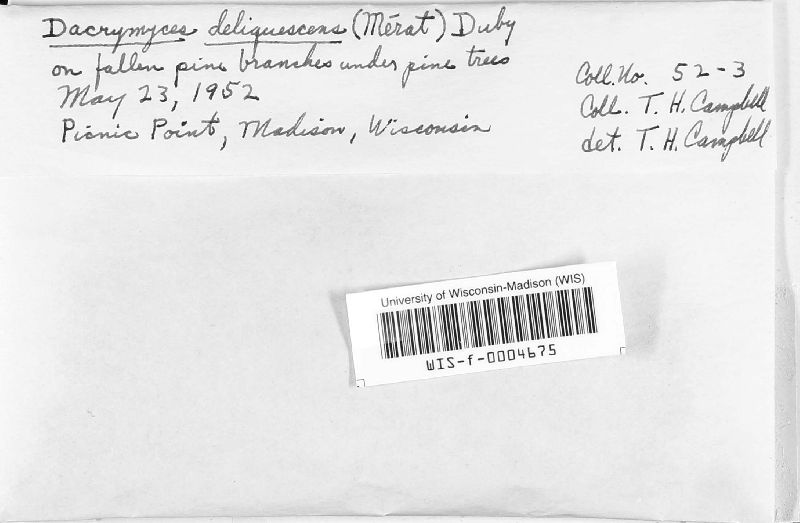 Dacrymyces deliquescens (Mérat) Duby
on fallen pine branches under pine trees
May 23, 1952
Picnic Point, Madison, Wisconsin
Coll. No. 52-3
Coll. T. H. Campbell
det. T. H. Campbell
University of Wisconsin-Madison (WIS)
WIS-f-0004675